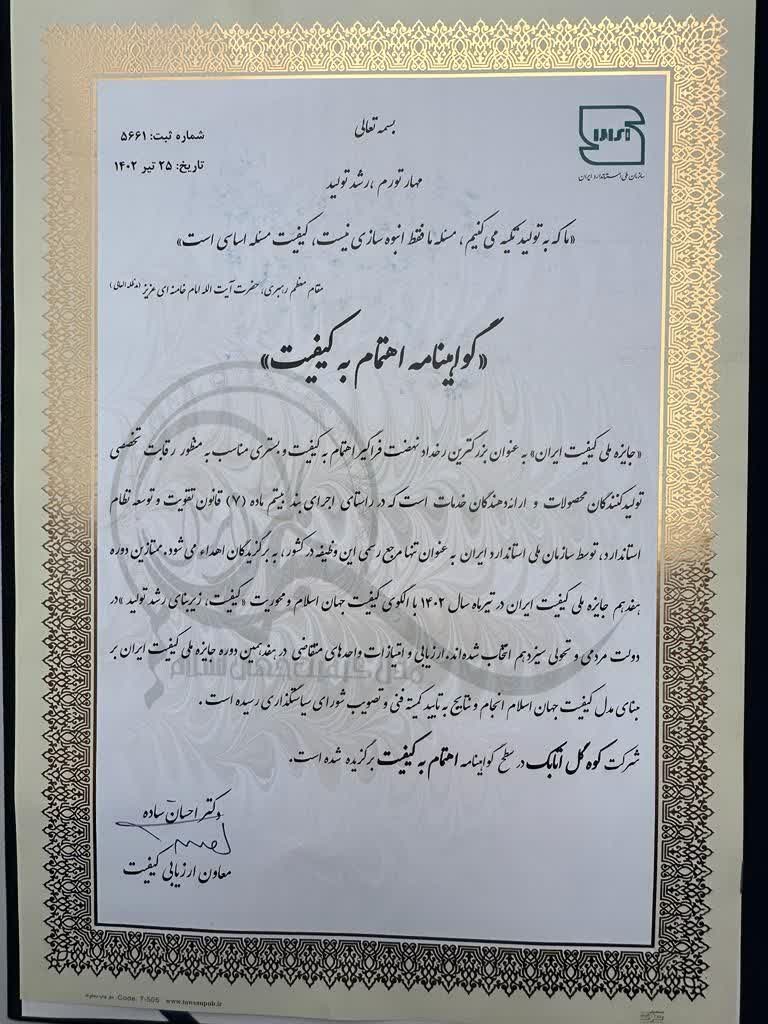 بسمه تعالی
شماره ثبت: ۵۶۶۱
تاریخ: ۲۵ تیر ۱۴۰۲
سازمان ملی استاندارد ایران
مهار تورم ،رشد تولید
«ما که به تولید تکیه می کنیم، مسئله ما فقط انبوه سازی نیست، کیفیت مسئله اساسی است»
مقام معظم رهبری، حضرت آیت الله امام خامنه ای عزیز (مدظله العالی)
«گواهینامه اهتمام به کیفیت»
«جایزه ملی کیفیت ایران» به عنوان بزرگترین رخداد نهضت فراگیر اهتمام به کیفیت و بستری مناسب به منظور رقابت تخصصی
تولیدکنندگان محصولات و ارائه‌دهندگان خدمات است که در راستای اجرای بند بیستم ماده (۷) قانون تقویت و توسعه نظام
استاندارد، توسط سازمان ملی استاندارد ایران به عنوان تنها مرجع رسمی این وظیفه در کشور، به برگزیدگان اهداء می شود. ممتازین دوره
هفدهم جایزه ملی کیفیت ایران در تیرماه سال ۱۴۰۲ با الگوی کیفیت جهان اسلام و محوریت «کیفیت، زیربنای رشد تولید» در
دولت مردمی و تحولی سیزدهم انتخاب شده‌اند. ارزیابی و امتیازات واحدهای متقاضی در هفدهمین دوره جایزه ملی کیفیت ایران بر
مبنای مدل کیفیت جهان اسلام انجام و نتایج به تایید کمیته فنی و تصویب شورای سیاستگذاری رسیده است .
شرکت کوه گل اتابک در سطح گواهینامه اهتمام به کیفیت برگزیده شده است.
دکتر احسان ساده
معاون ارزیابی کیفیت
مدل کیفیت جهان اسلام
Code: 7-505 www.tansanpub.ir